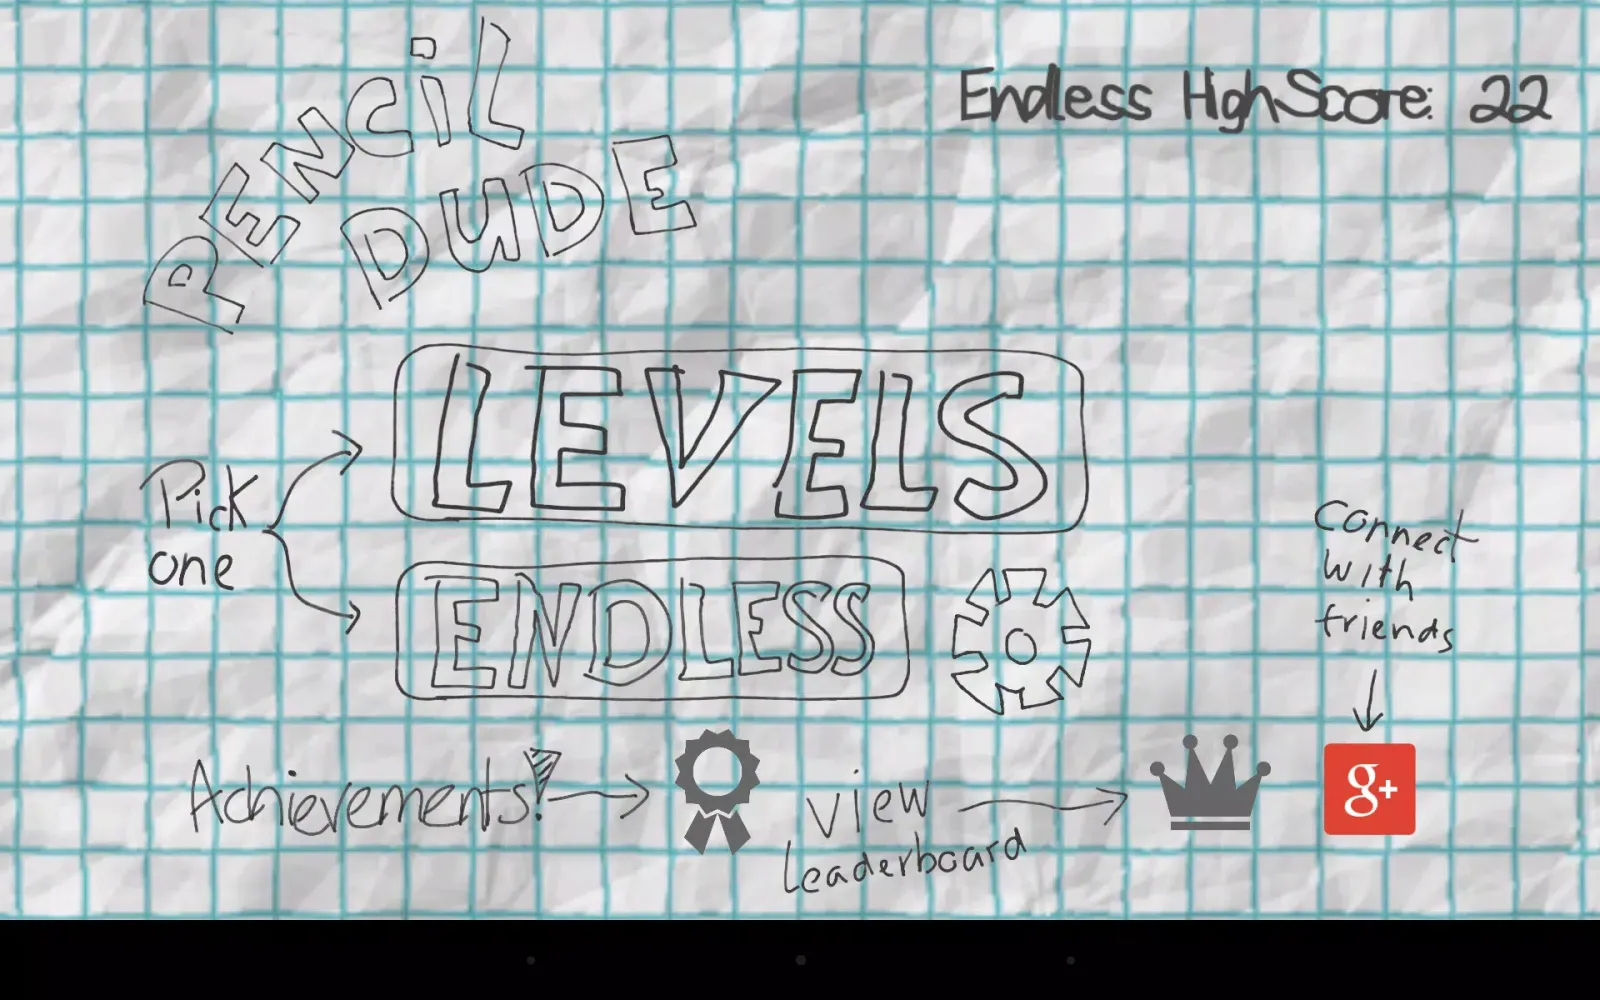 PENCiL
DUDE
Endless HighScore: 22
LEVELS
Pick
one
ENDLESS
Connect
with
friends
Achievements!
view
Leaderboard
g+